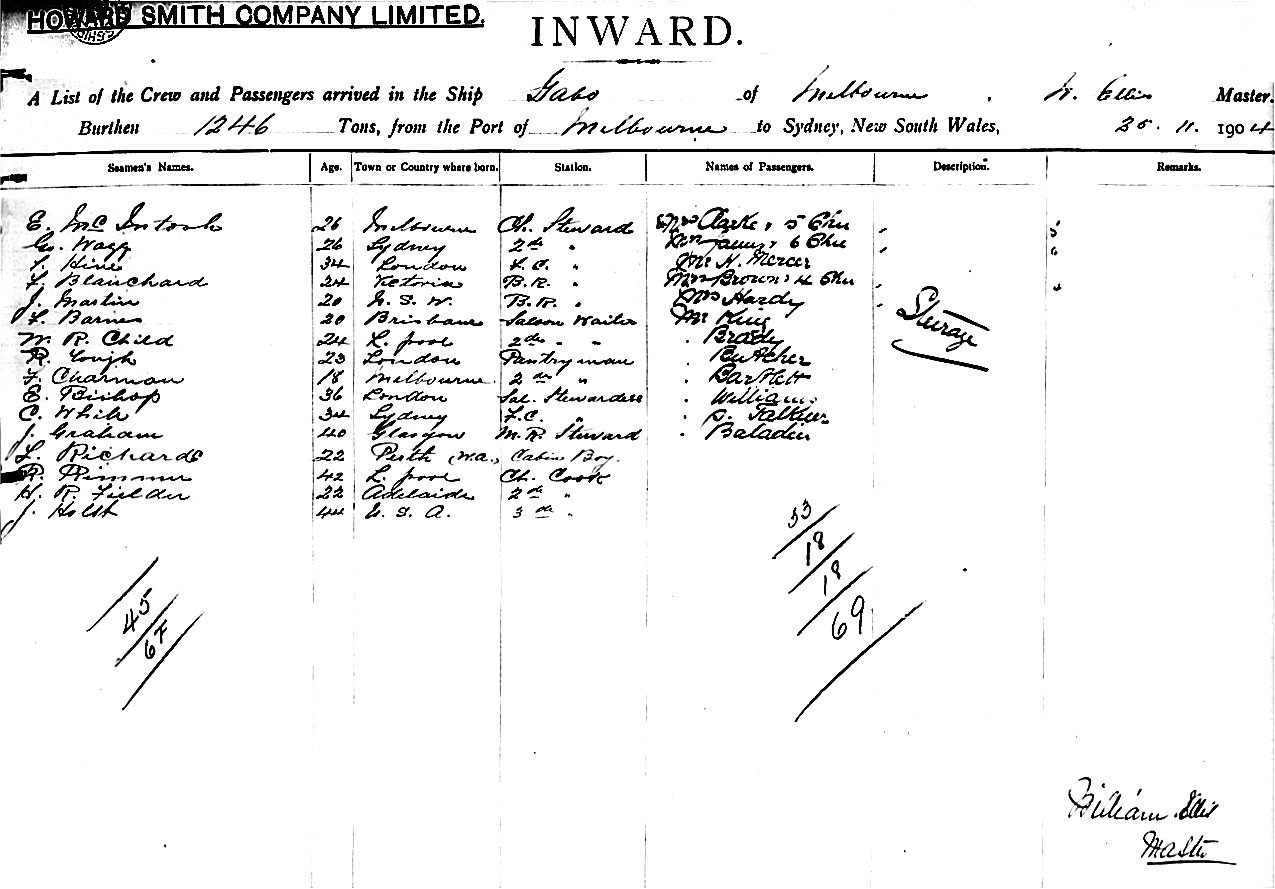 HOWARD SMITH COMPANY LIMITED.
INWARD.
A List of the Crew and Passengers arrived in the Ship Gabo of Melbourne, W. Ellis Master.
Burthen 1246 Tons, from the Port of Melbourne to Sydney, New South Wales, 25. 11. 1904
Seamen's Names. Age. Town or Country where born. Station. Names of Passengers. Description. Remarks.
E. McIntosh 26 Melbourne Ch. Steward Mrs Clarke & 5 Chn 5
Geo. Wagg 26 Sydney 2nd " Mrs & 6 Chn 6
Hine 34 London F.C. " Mr H. Mercer
Blanchard 24 Victoria B.R. " Mrs Brown & 4 Chn 4
J. Martin 20 N. S. W. B.R. " Mrs Hardy
Barnes 20 Brisbane Saloon Waiter Mr King
W. R. Child 24 L. pool 2nd " " " Brady
R. Gough 23 London Pantryman " Butcher
F. Charman 18 Melbourne 2nd " " Bartlett
E. Bishop 36 London Sal. Stewardess " Williams
C. White 34 Sydney F.C. " "
J. Graham 40 Glasgow M. R. Steward " Baladin
L. Richards 22 Perth (W.A.) Cabin Boy.
R. Rimmer 42 L. pool Ch. Cook
H. R. Fielder 22 Adelaide 2nd "
J. Holst 44 U. S. A. 3rd "
Steerage
33
18
18
69
45
67
William Ellis
Master